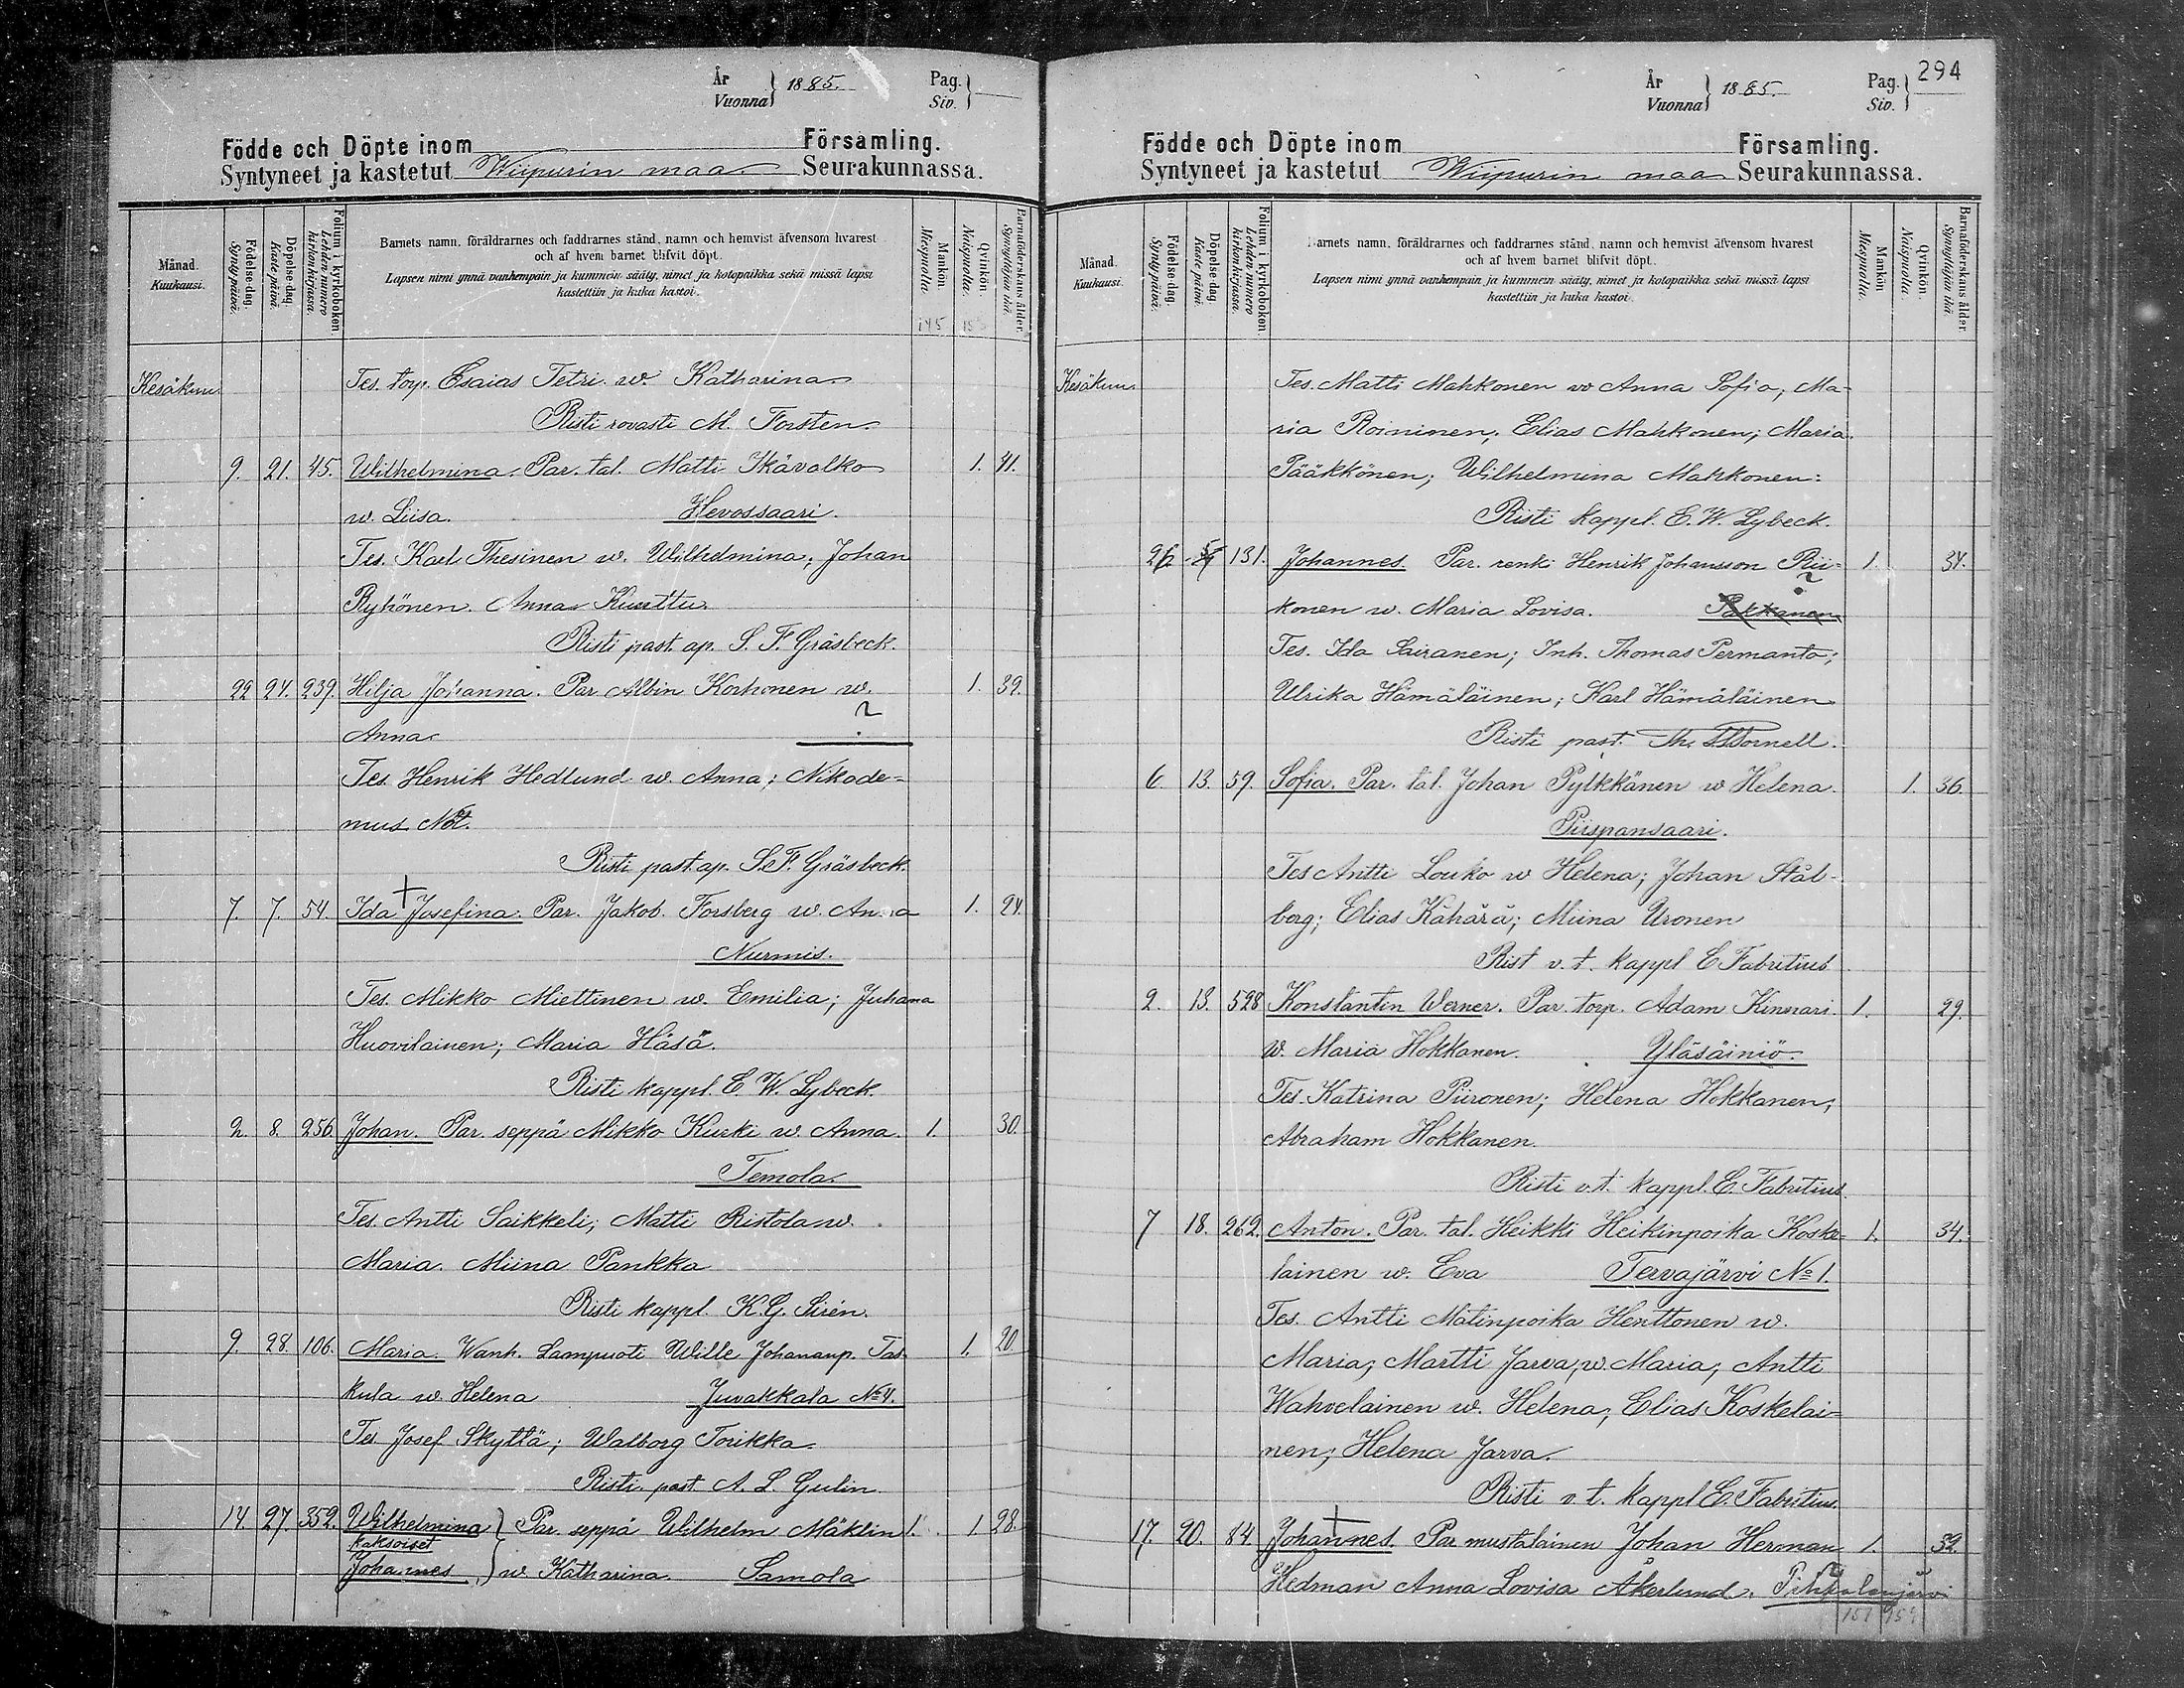 År
Vuonna } 1885. Pag.
Siv. }
Födde och Döpte inom Församling.
Syntyneet ja kastetut Wiipurin maa Seurakunnassa.
Månad. Kuukausi.
Födelse-dag. Syntypäivä.
Döpelse-dag. Kaste päivä.
Folium i kyrkoboken. Lehden numero kirkonkirjassa.
Barnets namn, föräldrarnes och faddrarnes stånd, namn och hemvist äfvensom hvarest
och af hvem barnet blifvit döpt.
Lapsen nimi ynnä vanhempain ja kummein sääty, nimet ja kotopaikka sekä missä lapsi
kastettiin ja kuka kastoi.
Mankön. Miespuolia.
Qvinkön. Naispuolia.
Barnaföderskans ålder. Synnyttäjän ikä.
145
Kesäkuu. Tes. torp. Esaias Tetri w. Katharina
Risti rovasti M. Forsten.
9. 21. 45. Wilhelmina. Par. tal. Matti Ikävalko 1. 41.
w. Liisa. Hevossaari.
Tes. Karl Thesinen w. Wilhelmina; Johan
Ryhönen. Anna Kunttu.
Risti past. ap. S. F. Gräsbeck.
22 24. 239. Hilja Johanna. Par. Albin Korhonen w. 1. 39.
Anna ?
Tes. Henrik Hedlund w. Anna; Nikode-
mus Not.
Risti past. ap. S. F. Gräsbeck.
7. 7. 54. Ida + Josefina. Par. Jakob Forsberg w. Anna 1. 24.
Nurmis.
Tes. Mikko Miettinen w. Emilia; Juhana
Huovilainen; Maria Häsä.
Risti kappl. E. W. Lybeck.
2. 8. 256. Johan. Par. seppä Mikko Kurki w. Anna. 1. 30.
Temola.
Tes. Antti Saikkeli; Matti Ristola w.
Maria. Miina Pankka
Risti kappl. K. G. Sirén.
9. 28. 106. Maria. Wanh. Lampuoti Wille Johananp. Tas- 1. 20.
kula w. Helena Juvakkala No 4.
Tes. Josef Skyttä; Walborg Torikka.
Risti past. A. L. Gulin.
14. 27. 352. Wilhelmina } Par. seppä Wilhelm Mäklin 1. 1 28.
kaksoiset
Johannes } w Katharina. Samola
År
Vuonna } 1885. Pag.
Siv. } 294
Födde och Döpte inom Församling.
Syntyneet ja kastetut Wiipurin maa Seurakunnassa.
Månad. Kuukausi.
Födelse-dag. Syntypäivä.
Döpelse-dag. Kaste päivä.
Folium i kyrkoboken. Lehden numero kirkonkirjassa.
Barnets namn, föräldrarnes och faddrarnes stånd, namn och hemvist äfvensom hvarest
och af hvem barnet blifvit döpt.
Lapsen nimi ynnä vanhempain ja kummein sääty, nimet ja kotopaikka sekä missä lapsi
kastettiin ja kuka kastoi.
Mankön. Miespuolia.
Qvinkön. Naispuolia.
Barnaföderskans ålder. Synnyttäjän ikä.
Kesäkuu. Tes. Matti Mahkonen w Anna Sofia; Ma-
ria Roininen; Elias Mahkonen; Maria
Pääkkönen; Wilhelmina Mahkonen:
Risti kappl. E. W. Lybeck.
131. Johannes. Par. renki Henrik Johansson Rii- 1. 34.
konen w. Maria Lovisa. Pakkanen ?
Tes. Ida Sairanen; Inh. Thomas Permanto;
Ulrika Hämäläinen; Karl Hämäläinen
Risti past. Th.
6. 13. 59. Sofia. Par. tal. Johan Pylkkänen w Helena. 1. 36.
Piispansaari.
Tes Antti Louko w Helena; Johan Stål-
berg; Elias Kähärä; Miina Uronen
Rist v. t. kappl E Fabritius
2. 13. 528 Konstantin Werner. Par. torp. Adam Kinnari. 1. 29.
w. Maria Hokkanen. Yläsäiniö.
Tes. Katrina Piironen; Helena Hokkanen;
Abraham Hokkanen.
Risti v. t. kappl. E. Fabritius
7 18. 262. Anton. Par. tal. Heikki Heikinpoika Koske- 1. 34.
lainen w. Eva Tervajärvi No 1.
Tes. Antti Matinpoika Henttonen w.
Maria; Martti Jarva, w. Maria; Antti
Wahvelainen w. Helena; Elias Koskelai-
nen; Helena Jarva.
Risti v. t. kappl E. Fabritius.
17. 20. 84 Johannes. + Par mustalainen Johan Herman 1. 32.
Hedman Anna Lovisa Åkerlund. Pihkalanjärvi
151 159